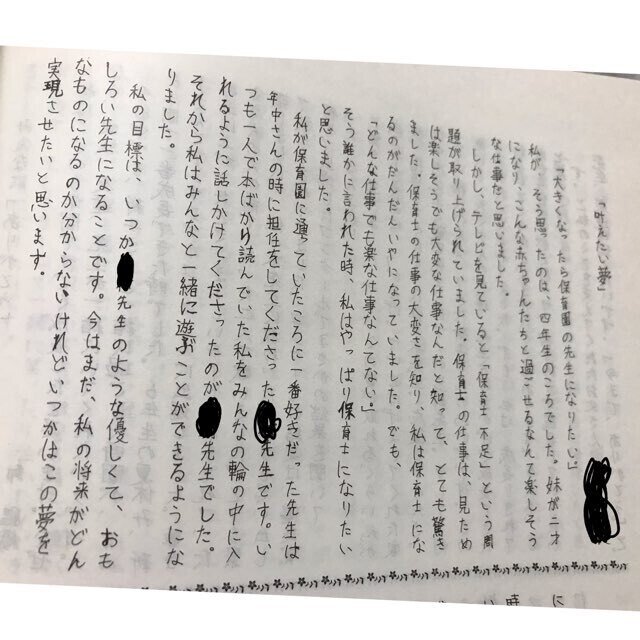 「叶えたい夢」
「大きくなったら保育園の先生になりたい。」
私が、そう思ったのは、四年生のころでした。妹が二才
になり、こんな赤ちゃんたちと過ごせるなんて楽しそう
な仕事だと思いました。
しかし、テレビを見ていると「保育士不足」という問
題が取り上げられていました。保育士の仕事は、見ため
は楽しそうでも大変な仕事なんだと知って、とても驚き
ました。保育士の仕事の大変さを知り、私は保育士にな
るのがだんだんいやになっていました。でも、
「どんな仕事でも楽な仕事なんてない。」
そう誰かに言われた時、私はやっぱり保育士になりたい
と思いました。
私が保育園に通っていたころに一番好きだった先生は
年中さんの時に担任をしてくださった先生です。い
つも一人で本ばかり読んでいた私をみんなの輪の中に入
れるように話しかけてくださったのが先生でした。
それから私はみんなと一緒に遊ぶことができるようにな
りました。
私の目標は、いつか先生のような優しくて、おも
しろい先生になることです。今はまだ、私の将来がどん
なものになるのか分からないけれどいつかはこの夢を
実現させたいと思います。